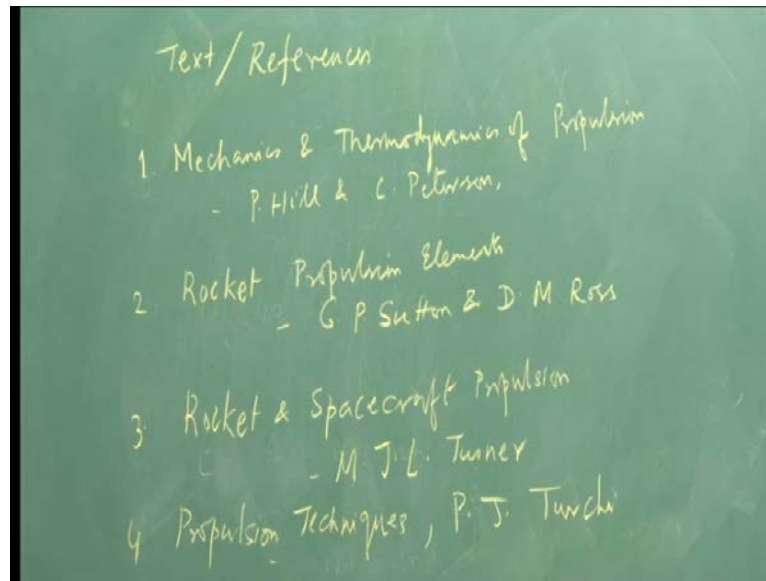 Text/References
1. Mechanics & Thermodynamics of Propulsion
- P. Hill & C. Peterson.
2. Rocket Propulsion Elements
- G P. Sutton & D. M Ross
3. Rocket & Spacecraft Propulsion
- M J.L. Turner
4 Propulsion Techniques, P. J. Turchi